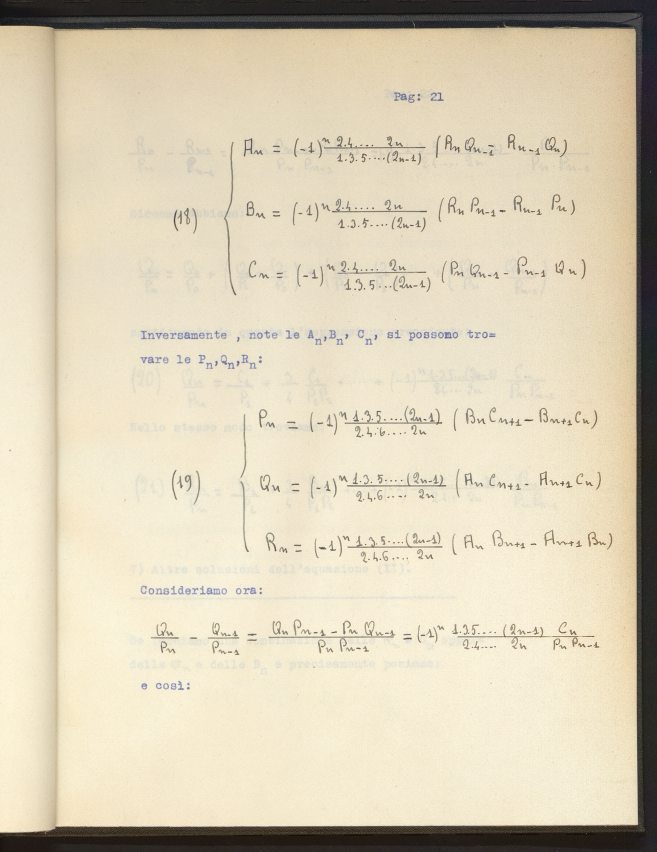 Pag: 21
Aₙ = (-1)ⁿ 2.4.... 2n / 1.3.5....(2n-1) (Rₙ Qₙ₋₁ - Rₙ₋₁ Qₙ)
(18) Bₙ = (-1)ⁿ 2.4.... 2n / 1.3.5....(2n-1) (Rₙ Pₙ₋₁ - Rₙ₋₁ Pₙ)
Cₙ = (-1)ⁿ 2.4.... 2n / 1.3.5...(2n-1) (Pₙ Qₙ₋₁ - Pₙ₋₁ Qₙ)
Inversamente , note le Aₙ,Bₙ, Cₙ, si possono tro=
vare le Pₙ,Qₙ,Rₙ:
Pₙ = (-1)ⁿ 1.3.5....(2n-1) / 2.4.6.... 2n (Bₙ Cₙ₊₁ - Bₙ₊₁ Cₙ)
(19) Qₙ = (-1)ⁿ 1.3.5....(2n-1) / 2.4.6.... 2n (Aₙ Cₙ₊₁ - Aₙ₊₁ Cₙ)
Rₙ = (-1)ⁿ 1.3.5....(2n-1) / 2.4.6.... 2n (Aₙ Bₙ₊₁ - Aₙ₊₁ Bₙ)
Consideriamo ora:
Qₙ / Pₙ - Qₙ₋₁ / Pₙ₋₁ = Qₙ Pₙ₋₁ - Pₙ Qₙ₋₁ / Pₙ Pₙ₋₁ = (-1)ⁿ 1.3.5.... (2n-1) / 2.4.... 2n Cₙ / Pₙ Pₙ₋₁
e così: